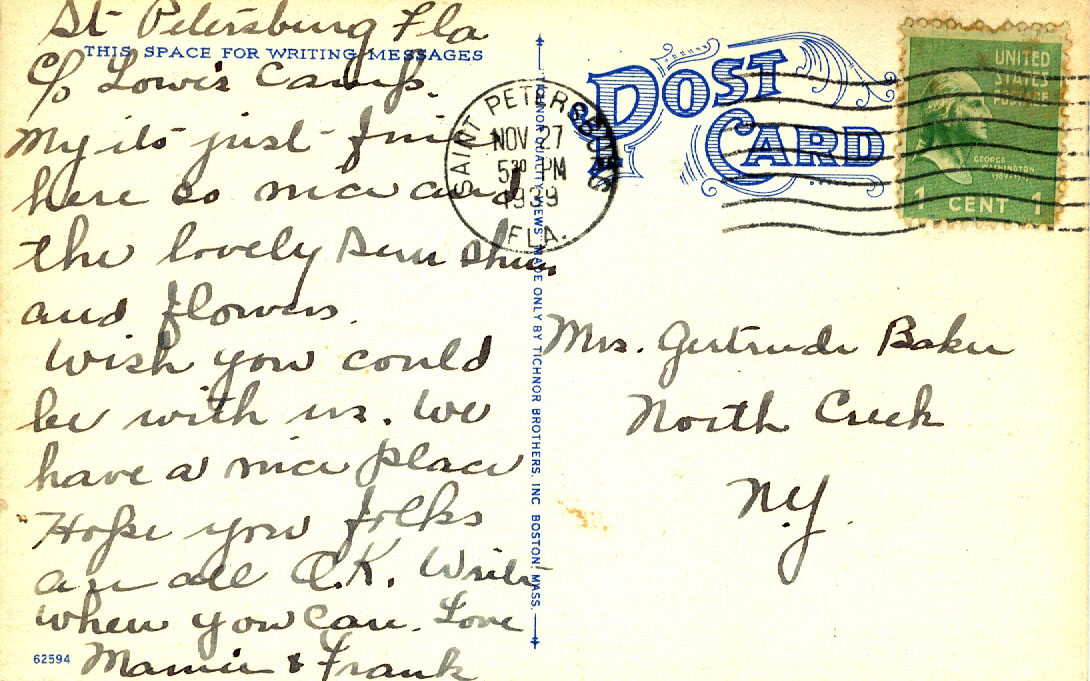 St Petersburg Fla
THIS SPACE FOR WRITING MESSAGES
c/o Lowis Camp.
My its just fine
here so nice and
the lovely Sun Shine
and flowers.
Wish you could
be with us. We
have a nice place
Hope you folks
are all O.K. Write
when you can. Love
Mamie & Frank
62594
TICHNOR QUALITY VIEWS MADE ONLY BY TICHNOR BROTHERS, INC BOSTON, MASS.
POST
CARD
SAINT PETERSBURG
NOV 27
5 30 PM
1939
FLA.
UNITED
STATES
POSTAGE
GEORGE
WASHINGTON
1 CENT 1
Mrs. Gertrude Baker
North Creek
N.Y.